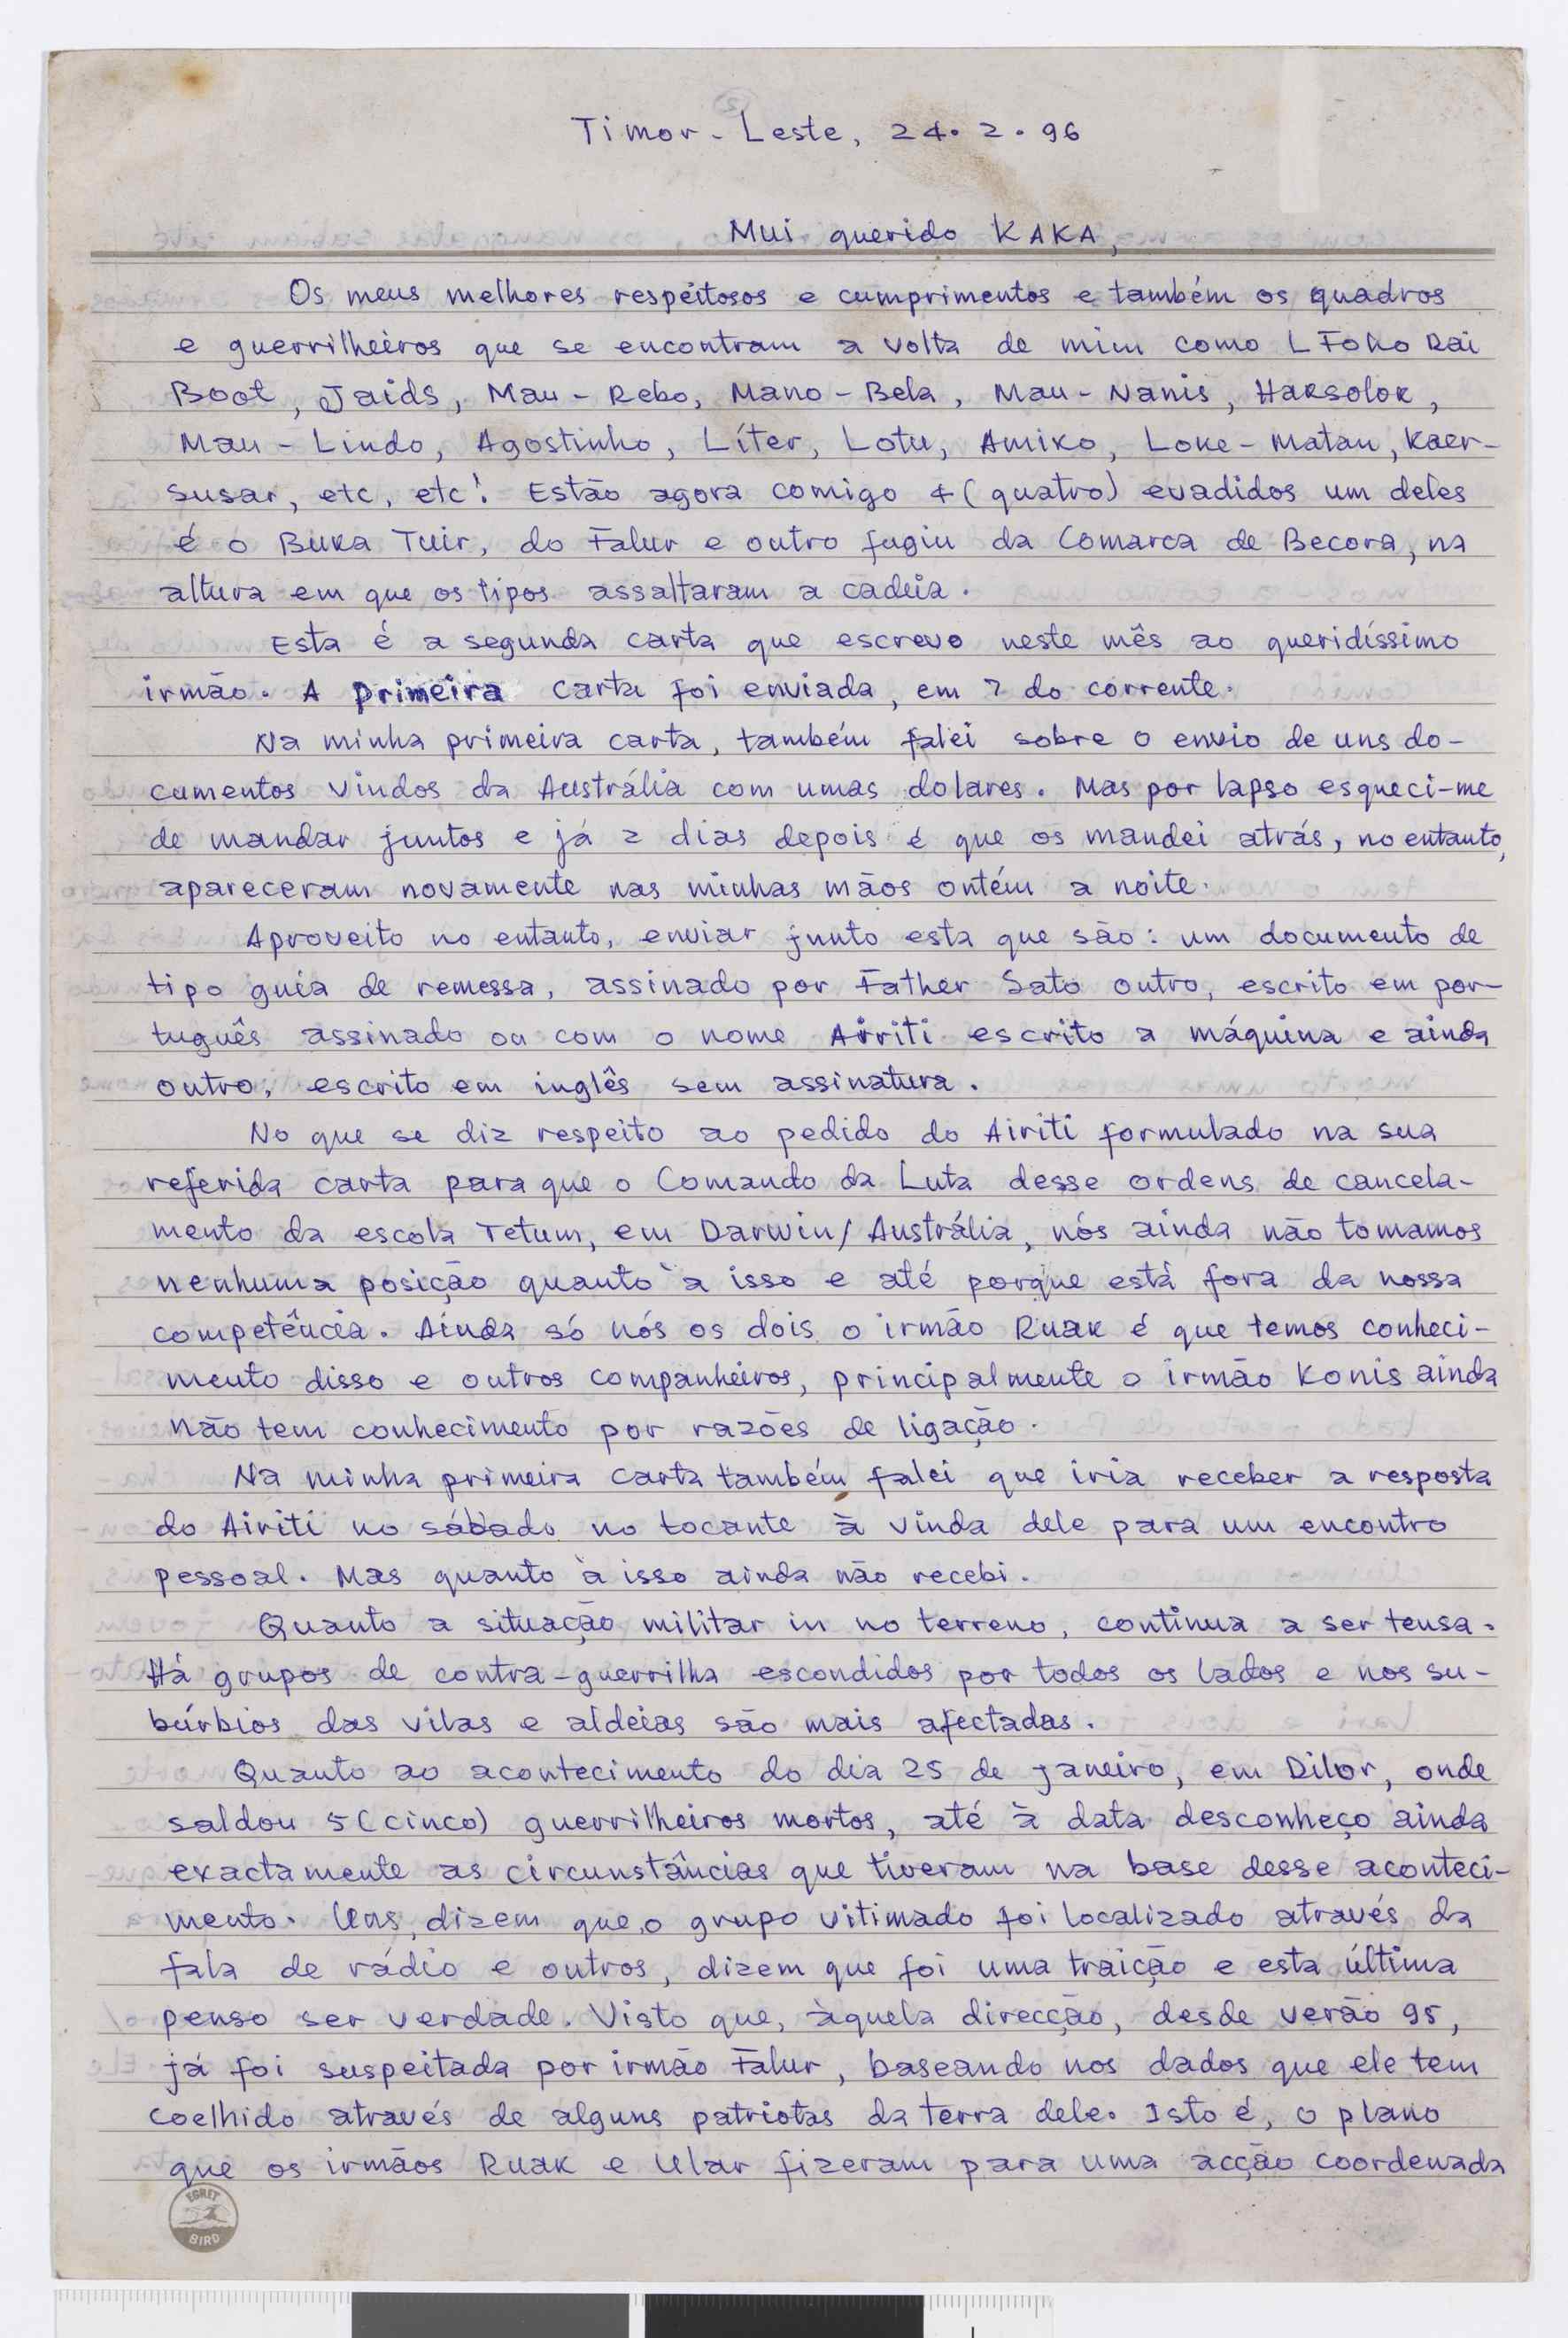 Timor-Leste, 24.2.96
Mui querido KAKA,
Os meus melhores respeitosos e cumprimentos e também os quadros
e guerrilheiros que se encontram a volta de mim como L Foho Rai
Boot, Jaids, Mau-Rebo, Mano-Bela, Mau-Nanis, Haksolok,
Mau-Lindo, Agostinho, Líter, Lotu, Amiko, Loke-Matan, Kaer-
susar, etc, etc! Estão agora comigo 4 (quatro) evadidos um deles
é o Buka Tuir, do Falur e outro fugiu da Comarca de Becora, na
altura em que os tipos assaltaram a cadeia.
Esta é a segunda carta que escrevo neste mês ao queridíssimo
irmão. A primeira carta foi enviada, em 7 do corrente.
Na minha primeira carta, também falei sobre o envio de uns do-
cumentos vindos da Austrália com umas dolares. Mas por lapso esqueci-me
de mandar juntos e já 2 dias depois é que os mandei atrás, no entanto,
apareceram novamente nas minhas mãos ontém a noite.
Aproveito no entanto, enviar junto esta que são: um documento de
tipo guia de remessa, assinado por Father Sato outro, escrito em por-
tuguês assinado ou com o nome Airiti escrito a máquina e ainda
outro, escrito em inglês sem assinatura.
No que se diz respeito ao pedido do Airiti formulado na sua
referida carta para que o Comando da Luta desse ordens de cancela-
mento da escola Tetum, em Darwin/Austrália, nós ainda não tomamos
nenhuma posição quanto à isso e até porque está fora da nossa
competência. Ainda só nós os dois o irmão Ruak é que temos conheci-
mento disso e outros companheiros, principalmente o irmão Konis ainda
não tem conhecimento por razões de ligação.
Na minha primeira carta também falei que iria receber a resposta
do Airiti no sábado no tocante à vinda dele para um encontro
pessoal. Mas quanto à isso ainda não recebi.
Quanto a situação militar in no terreno, continua a ser tensa.
Há grupos de contra-guerrilha escondidos por todos os lados e nos su-
búrbios das vilas e aldeias são mais afectadas.
Quanto ao acontecimento do dia 25 de Janeiro, em Dilor, onde
saldou 5 (cinco) guerrilheiros mortos, até à data desconheço ainda
exactamente as circunstâncias que tiveram na base desse aconteci-
mento. Uns, dizem que o grupo vitimado foi localizado através da
fala de rádio e outros, dizem que foi uma traição e esta última
penso ser verdade. Visto que, àquela direcção, desde verão 95,
já foi suspeitada por irmão Falur, baseando nos dados que ele tem
coelhido através de alguns patriotas da terra dele. Isto é, o plano
que os irmãos Ruak e Ular fizeram para uma acção coordenada
EGRET
BIRD